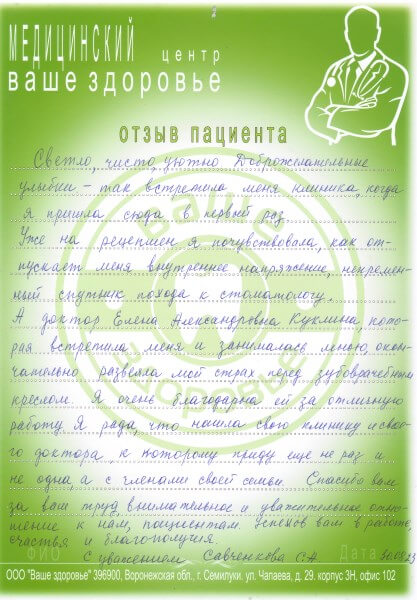 МЕДИЦИНСКИЙ центр
ваше здоровье
отзыв пациента
Светло, чисто, уютно Доброжелательные
улыбки – так встретила меня клиника, когда
я пришла сюда в первый раз
Уже на рецепшен я почувствовала, как от-
пускает меня внутреннее напряжение, непремен-
ный спутник похода к стоматологу.
А доктор Елена Александровна Куклина, кото-
рая встретила меня и занималась мною, окон-
чательно развеяла мой страх перед зубоврачебным
креслом. Я очень благодарна ей за отличную
работу Я рада, что нашла свою клинику и свое-
го доктора, к которому приду еще не раз и
не одна, а с членами своей семьи. Спасибо вам
за ваш труд, внимательное и уважительное отно-
шение к нам, пациентам. Успехов вам в работе,
счастья и благополучия.
ФИО С уважением Савченкова С.А. Дата
ООО "Ваше здоровье" 396900, Воронежская обл., г. Семилуки. ул. Чапаева, д. 29. корпус 3Н, офис 102